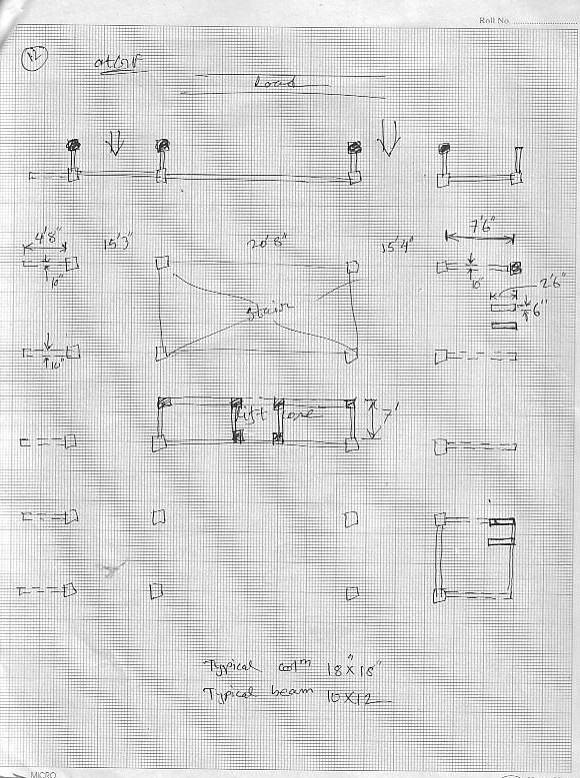 Roll No.
12
Load
4'8"
15'3"
20'8"
15'4"
7'6"
10"
10"
2'6"
6"
Stair
10"
Lift Core
7'
Typical col^m 18"x18"
Typical beam 10x12
MICRO